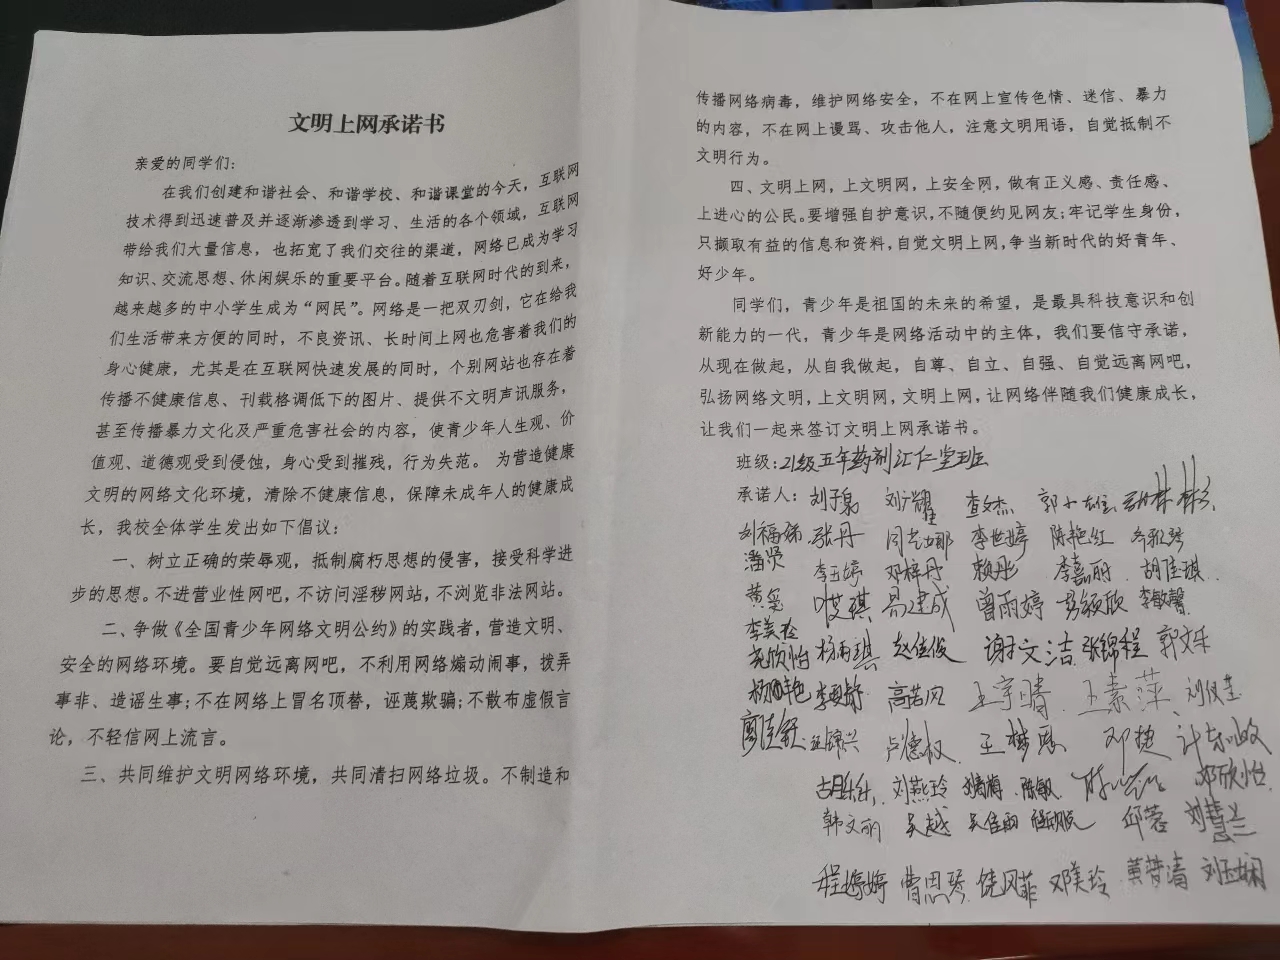 文明上网承诺书
亲爱的同学们：
在我们创建和谐社会、和谐学校、和谐课堂的今天，互联网
技术得到迅速普及并逐渐渗透到学习、生活的各个领域，互联网
带给我们大量信息，也拓宽了我们交往的渠道，网络已成为学习
知识、交流思想、休闲娱乐的重要平台。随着互联网时代的到来，
越来越多的中小学生成为“网民”。网络是一把双刃剑，它在给我
们生活带来方便的同时，不良资讯、长时间上网也危害着我们的
身心健康，尤其是在互联网快速发展的同时，个别网站也存在着
传播不健康信息、刊载格调低下的图片、提供不文明声讯服务，
甚至传播暴力文化及严重危害社会的内容，使青少年人生观、价
值观、道德观受到侵蚀，身心受到摧残，行为失范。 为营造健康
文明的网络文化环境，清除不健康信息，保障未成年人的健康成
长，我校全体学生发出如下倡议：
一、树立正确的荣辱观，抵制腐朽思想的侵害，接受科学进
步的思想。不进营业性网吧，不访问淫秽网站，不浏览非法网站。
二、争做《全国青少年网络文明公约》的实践者，营造文明、
安全的网络环境。要自觉远离网吧，不利用网络煽动闹事，拨弄
事非、造谣生事；不在网络上冒名顶替，诬蔑欺骗；不散布虚假言
论，不轻信网上流言。
三、共同维护文明网络环境，共同清扫网络垃圾。不制造和
传播网络病毒，维护网络安全，不在网上宣传色情、迷信、暴力
的内容，不在网上谩骂、攻击他人，注意文明用语，自觉抵制不
文明行为。
四、文明上网，上文明网，上安全网，做有正义感、责任感、
上进心的公民。要增强自护意识，不随便约见网友；牢记学生身份，
只撷取有益的信息和资料，自觉文明上网，争当新时代的好青年、
好少年。
同学们，青少年是祖国的未来的希望，是最具科技意识和创
新能力的一代，青少年是网络活动中的主体，我们要信守承诺，
从现在做起，从自我做起，自尊、自立、自强、自觉远离网吧，
弘扬网络文明，上文明网，文明上网，让网络伴随我们健康成长，
让我们一起来签订文明上网承诺书。
班级：21级五年药剂汇仁堂班
承诺人：刘子泉 刘广耀 查文杰
刘福娣 张丹 李世婷 陈艳红
潘贤 李玉婷 邓梓丹 赖彤 李嘉丽 胡佳琪
黄莹 易建成 曾雨婷 彭颖欣 李敏馨
李美玲
尧欣怡 杨雨琪 赵佳俊 谢文洁 张锦程 郭文乐
杨艳 高若风 王宇晴 王素萍
廖佳舒 卢德权 王梦瑶 邓捷
胡乐乐 刘燕玲 陈敏 邓欣怡
韩文丽 吴越 吴佳雨 邱蓉 刘慧兰
程婷婷 曹思琴 饶风菲 邓美玲 黄梦清 刘玉娴